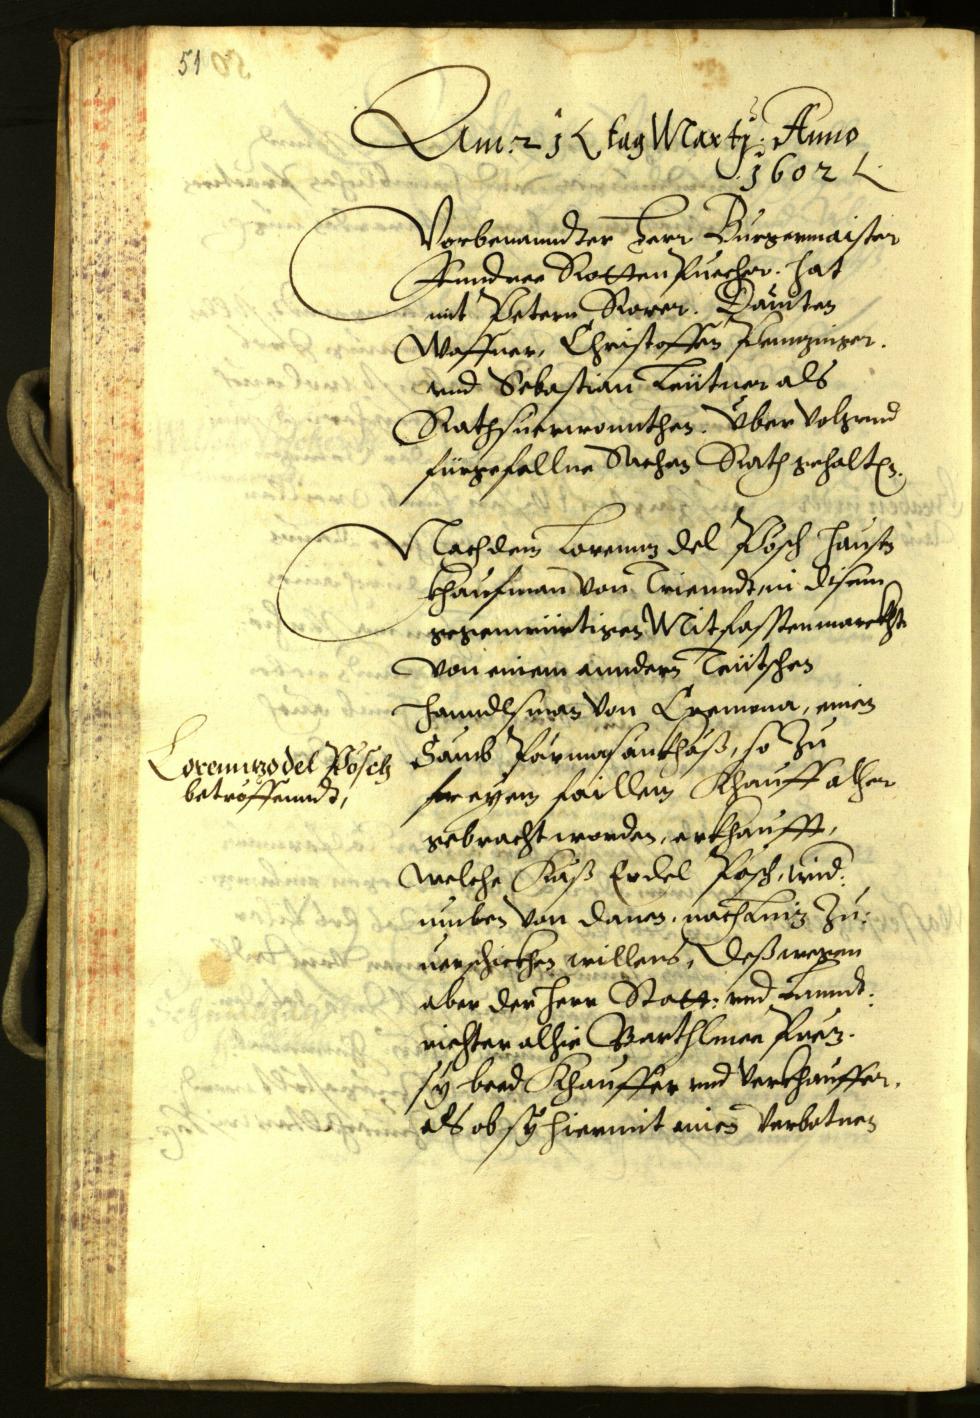 51
Am: 21 tag Martÿ: Anno
1602
Vorbenanndter Herr Burgermaister
Anndree Rottenpuecher. hat
mit Petern Rorer. Dauiten
Waffner, Christoffen
vnd Sebastian Leütner als
Rathsuerwonnthen. vber volgend
fürgefallne Sachen Rath gehalten.
Nachdem Lorennz del Posch Hanns
khaufman von Triendt, in disem
gegenwürtigen Mitfasstenmarckht
von einem anndern Teütschen
Hanndlsman von Cremona, einen
Saumb Parmasankhäß, so zu
freyem faillem Khauff alher
gebracht worden, erkhaufft,
welche Käß Er del Posch, wid:
umben von danen. nach Linz zu:
uerschickhen willens, Deßwegen
aber der Herr Statt: vnd Lanndt:
richter alhie Barthlmee
sy beed Khauffer vnd verkhauffer,
als ob sÿ hiermit einen verbotnen
Lorennzo del Posch
betreffenndt,